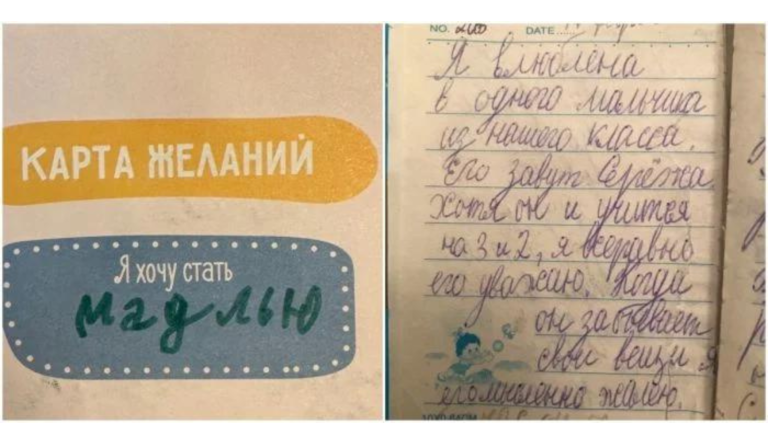 КАРТА ЖЕЛАНИЙ
Я хочу стать
мадлью
NO. 200 DATE
Я влюблена
в одного мальчика
из нашего класса.
Его завут Серёжа
Хотя он и учится
на 3 и 2, я всеравно
его уважаю. Когда
он забывает
свои вещи я
его мысленно жалею.